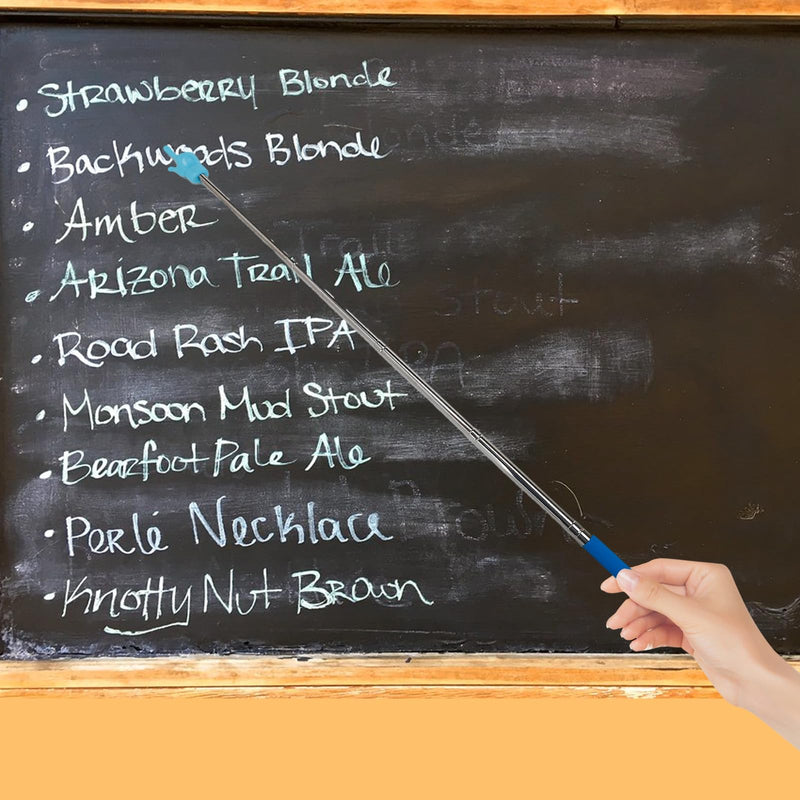 • Strawberry Blonde
• Backwoods Blonde
• Amber
• Arizona Trail Ale
• Road Rash IPA
• Monsoon Mud Stout
• Bearfoot Pale Ale
• Perle Necklace
• Knotty Nut Brown